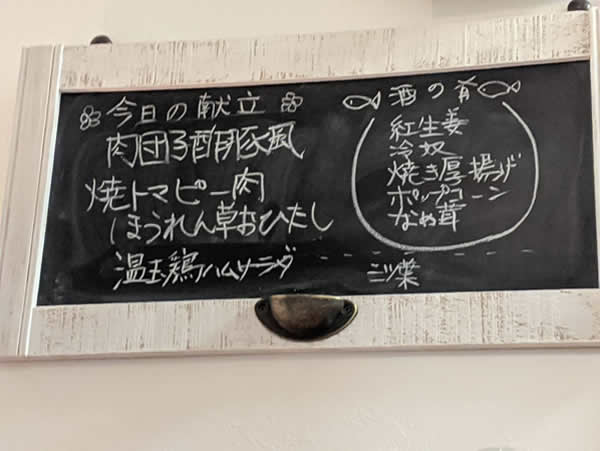 今日の献立
肉団子酢豚風
焼トマピー肉
ほうれん草おひたし
温玉鶏ハムサニダ
酒の肴
紅生姜
冷奴
焼き厚揚げ
ポップコーン
なめ茸
三ツ葉